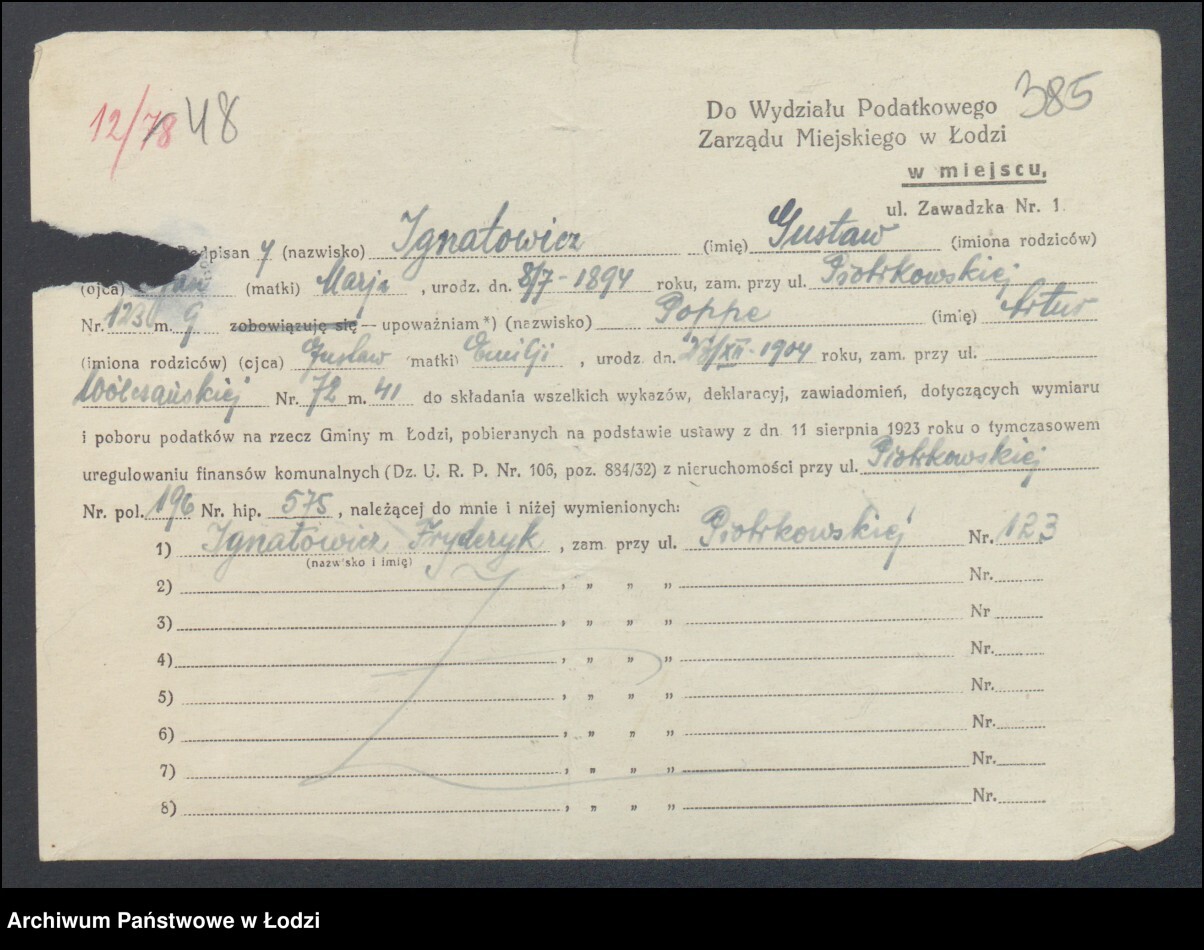 12/78 48
385
Do Wydziału Podatkowego
Zarządu Miejskiego w Łodzi
w miejscu,
ul. Zawadzka Nr. 1
dpisan y (nazwisko) Ignatowicz (imię) Gustaw (imiona rodziców)
(ojca) Jan (matki) Marja, urodz. dn. 8/7 - 1894 roku, zam. przy ul. Piotrkowskiej
Nr. 123 m. 9 zobowiązuję się — upoważniam *) (nazwisko) Poppe (imię) Artur
(imiona rodziców) (ojca) Gustaw matki) Emilji, urodz. dn. /XII - 1904 roku, zam. przy ul.
Wólczańskiej Nr. 72 m. 41 do składania wszelkich wykazów, deklaracyj, zawiadomień, dotyczących wymiaru
i poboru podatków na rzecz Gminy m. Łodzi, pobieranych na podstawie ustawy z dn. 11 sierpnia 1923 roku o tymczasowem
uregulowaniu finansów komunalnych (Dz. U. R. P. Nr. 106, poz. 884/32) z nieruchomości przy ul. Piotrkowskiej
Nr. pol. 196 Nr. hip. 575, należącej do mnie i niżej wymienionych:
1) Ignatowicz Fryderyk, zam. przy ul. Piotrkowskiej Nr. 123
(nazwisko i imię)
2) , „ „ „ Nr.
3) , „ „ „ Nr
4) , „ „ „ Nr.
5) , „ „ „ Nr.
6) , „ „ „ Nr.
7) , „ „ „ Nr.
8) , „ „ „ Nr.
Archiwum Państwowe w Łodzi